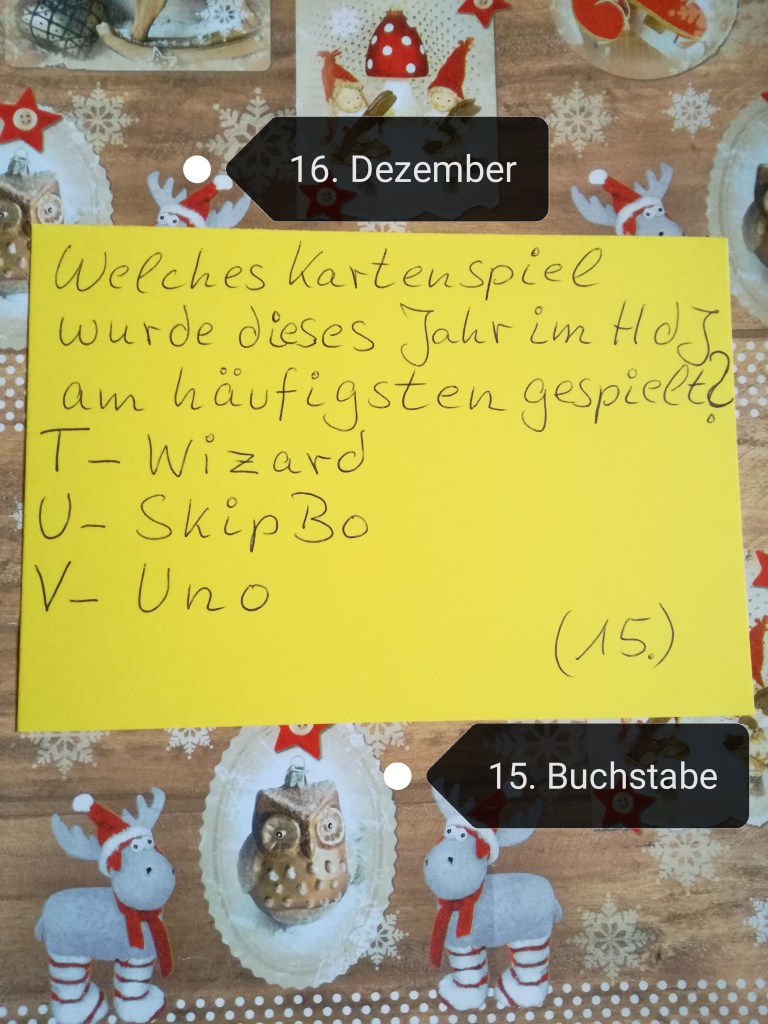 16. Dezember
Welches Kartenspiel
wurde dieses Jahr im HdJ
am häufigsten gespielt?
T– Wizard
U– SkipBo
V– Uno
(15.)
15. Buchstabe